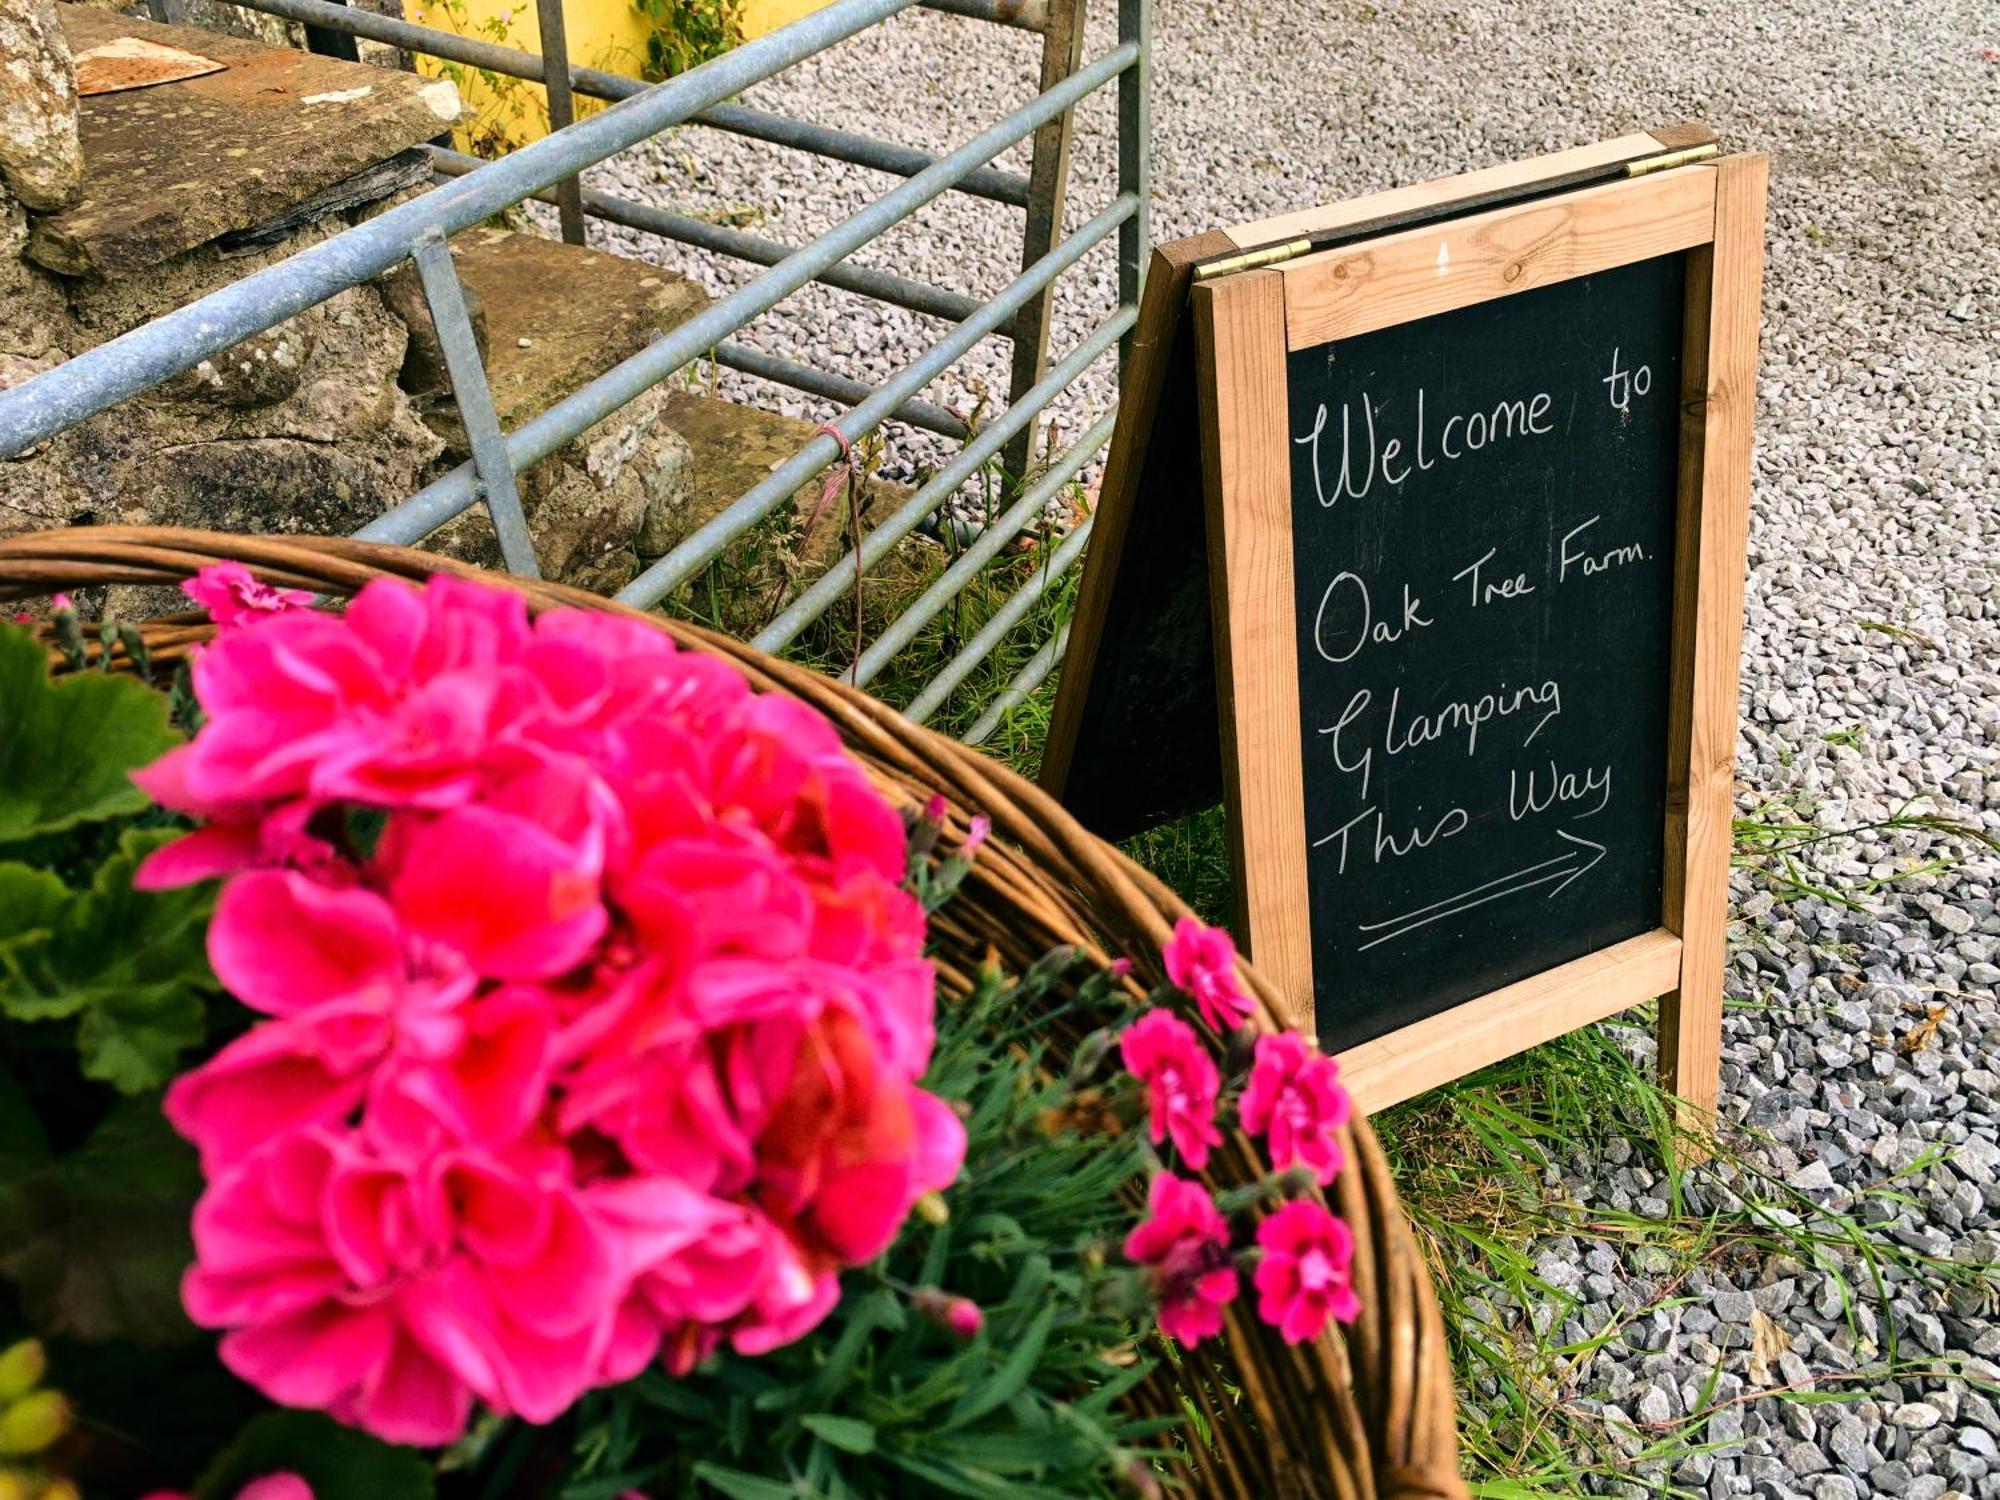 Welcome to
Oak Tree Farm.
Glamping
This Way